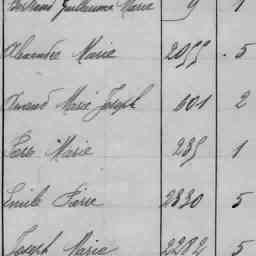 Bertrand Guillaume Marie 9 1
Alexandre Marie 2055 - 5
Armand Marie Joseph 601 2
Marie 235 1
Emile Pierre 2330 5
Joseph Marie 2282 5